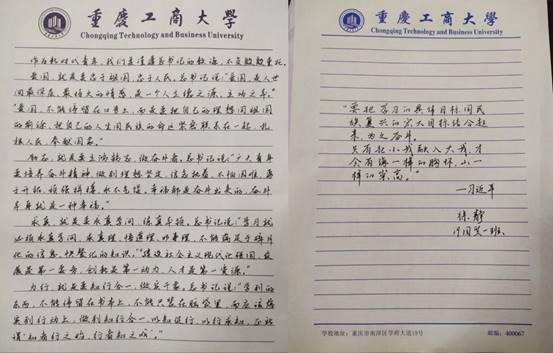 重慶工商大學
Chongqing Technology and Business University
作为新时代青年，我们要谨遵总书记的教诲，不负殷殷重托。
爱国，就是要忠于祖国，忠于人民。总书记说："爱国，是人世
间最深层、最持久的情感，是一个人立德之源、立功之本。"
"爱国，不能停留在口号上，而是要把自己的理想同祖国
的前途，把自己的人生同民族的命运紧密联系在一起，扎根
人民，奉献国家。"
励志，就是要立鸿鹄志，做奋斗者。总书记说："广大青年
要培养奋斗精神，做到理想坚定，信念执着，不怕困难，勇
于开拓，顽强拼搏，永不气馁。幸福都是奋斗出来的，奋斗
本身就是一种幸福。"
求真，就是要求真学问，练真本领。总书记说："学习就
必须求真学问，求真理、悟道理、明事理，不能满足于碎片
化的信息、快餐化的知识。""建设社会主义现代化强国，发
展是第一要务，创新是第一动力，人才是第一资源。"
力行，就是要知行合一，做实干家。总书记说："学到的
东西，不能停留在书本上，不能只装在脑袋里，而应该落
实到行动上，做到知行合一、以知促行、以行求知，正所
谓'知者行之始，行者知之成'。"
重慶工商大學
Chongqing Technology and Business University
"要把学习的具体目标同民
族复兴的宏大目标结合起
来，为之奋斗。
只有把小我融入大我，才
会有海一样的胸怀，山一
样的崇高。"
—习近平
徐静
19国贸一班
学校地址：重庆市南岸区学府大道19号
邮编：400067